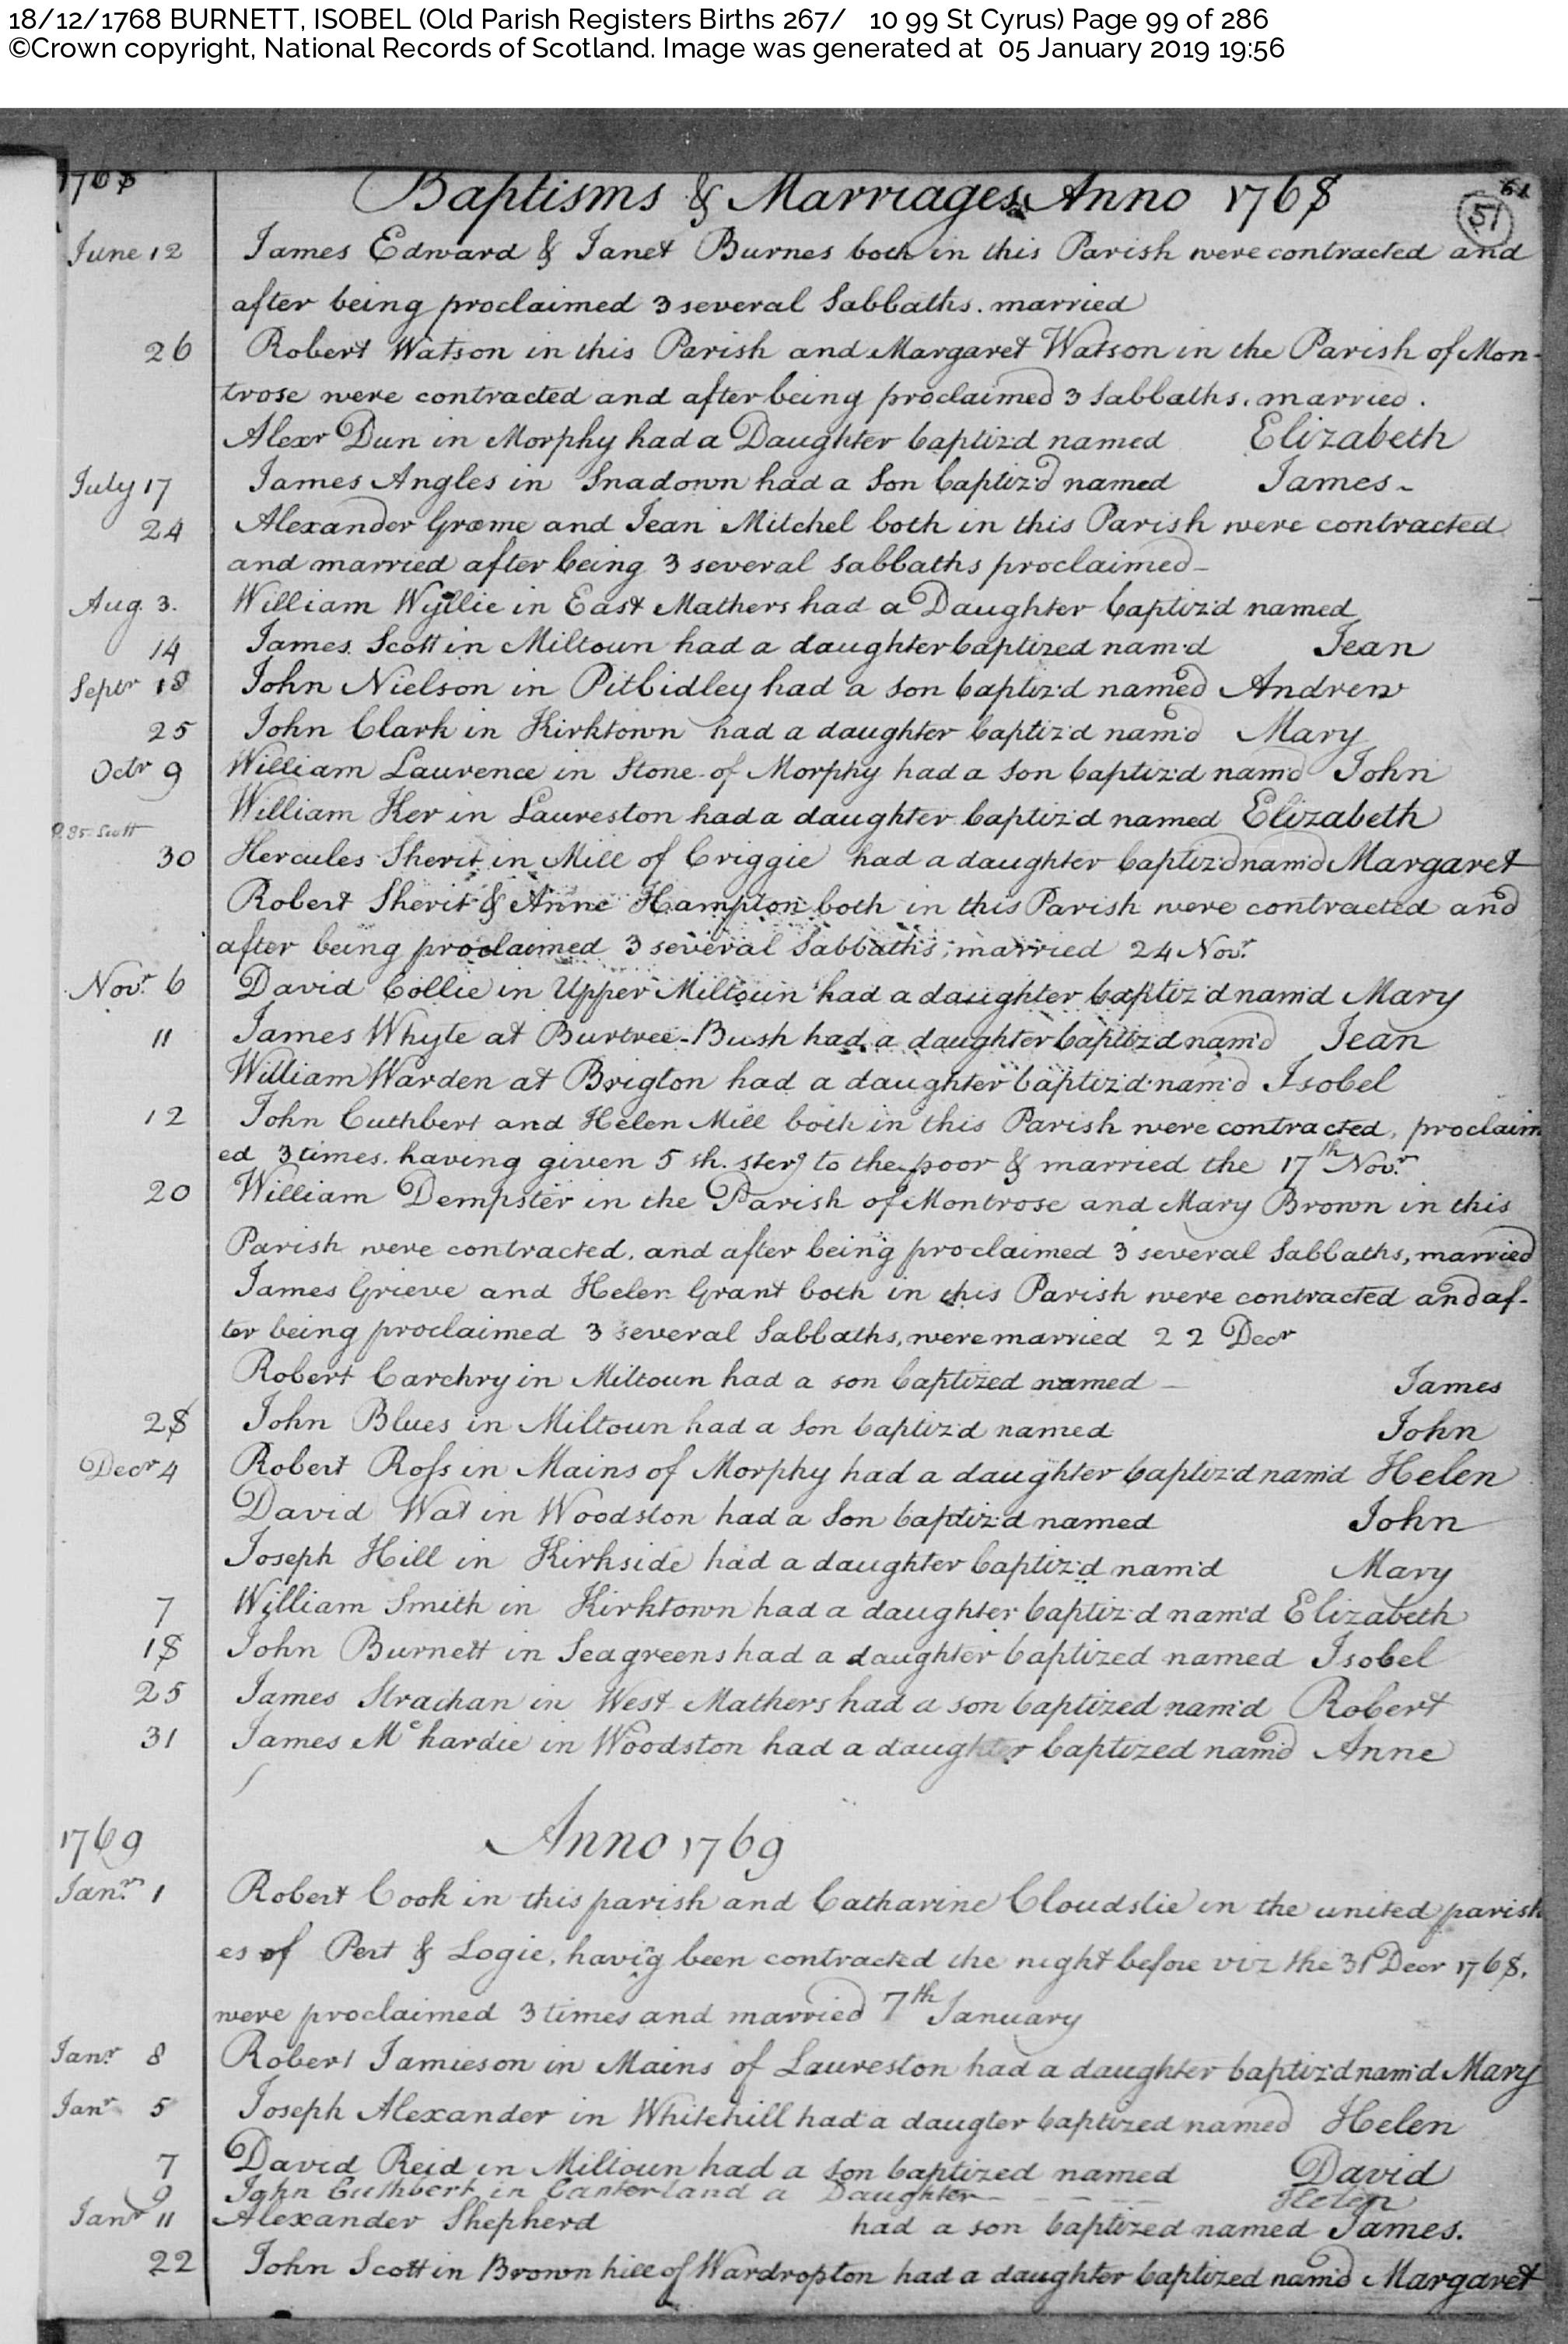 18/12/1768 BURNETT, ISOBEL (Old Parish Registers Births 267/ 10 99 St Cyrus) Page 99 of 286
©Crown copyright, National Records of Scotland. Image was generated at 05 January 2019 19:56
1768 Baptisms & Marriages Anno 1768 61 51
June 12 James Edward & Janet Burnes both in this Parish were contracted and
after being proclaimed 3 several Sabbaths. married
26 Robert Watson in this Parish and Margaret Watson in the Parish of Mon-
trose were contracted and after being proclaimed 3 Sabbaths. married.
Alexr Dun in Morphy had a Daughter baptiz'd named Elizabeth
July 17 James Angles in Snadown had a Son baptiz'd named James-
24 Alexander Græme and Jean Mitchel both in this Parish were contracted
and married after being 3 several Sabbaths proclaimed-
Aug. 3. William Wyllie in East Mathers had a Daughter baptiz'd named
14 James Scott in Miltoun had a daughter baptized nam'd Jean
Septr 18 John Nielson in Pitbidley had a son baptiz'd named Andrew
25 John Clark in Kirktown had a daughter baptiz'd nam'd Mary
Octr 9 William Laurence in Stone of Morphy had a son baptiz'd nam'd John
William Ker in Laureston had a daughter baptiz'd named Elizabeth
30 Hercules Sherit in Mill of Criggie had a daughter baptiz'd nam'd Margaret
Robert Sherit & Anne Hampton both in this Parish were contracted and
after being proclaimed 3 several Sabbaths, married 24 Novr.
Novr. 6 David Collie in Upper Miltoun had a daughter baptiz'd nam'd Mary
11 James Whyte at Burtree-Bush had a daughter baptiz'd nam'd Jean
William Warden at Brigton had a daughter baptiz'd nam'd Isobel
12 John Cuthbert and Helen Mill both in this Parish were contracted, proclaim
ed 3 times. having given 5 sh. sterg to the poor & married the 17th Novr.
20 William Dempster in the Parish of Montrose and Mary Brown in this
Parish were contracted, and after being proclaimed 3 several Sabbaths, married
James Grieve and Helen Grant both in this Parish were contracted and af-
ter being proclaimed 3 several Sabbaths, were married 22 Decr
Robert Carchry in Miltoun had a son baptized named - James
28 John Blues in Miltoun had a Son baptiz'd named John
Decr 4 Robert Ross in Mains of Morphy had a daughter baptiz'd nam'd Helen
David Wat in Woodston had a Son baptiz'd named John
Joseph Hill in Kirkside had a daughter baptiz'd nam'd Mary
7 William Smith in Kirktown had a daughter baptiz'd nam'd Elizabeth
18 John Burnett in Seagreens had a daughter baptized named Isobel
25 James Strachan in West Mathers had a son baptized nam'd Robert
31 James Mc hardie in Woodston had a daughter baptized nam'd Anne
1769 Anno 1769
Janr. 1 Robert Cook in this parish and Catharine Cloudslie in the united parish
es of Pert & Logie, havi'g been contracted the night before viz the 31 Decr 1768,
were proclaimed 3 times and married 7th January
Janr. 8 Robert Jamieson in Mains of Laureston had a daughter baptiz'd nam'd Mary
Janr 5 Joseph Alexander in Whitehill had a daugter baptized named Helen
7 David Reid in Miltoun had a son baptized named David
9 John Cuthbert in Canterland a Daughter - - - - Helen
Janr 11 Alexander Shepherd had a son baptized named James.
22 John Scott in Brown hill of Wardropton had a daughter baptized nam'd Margaret